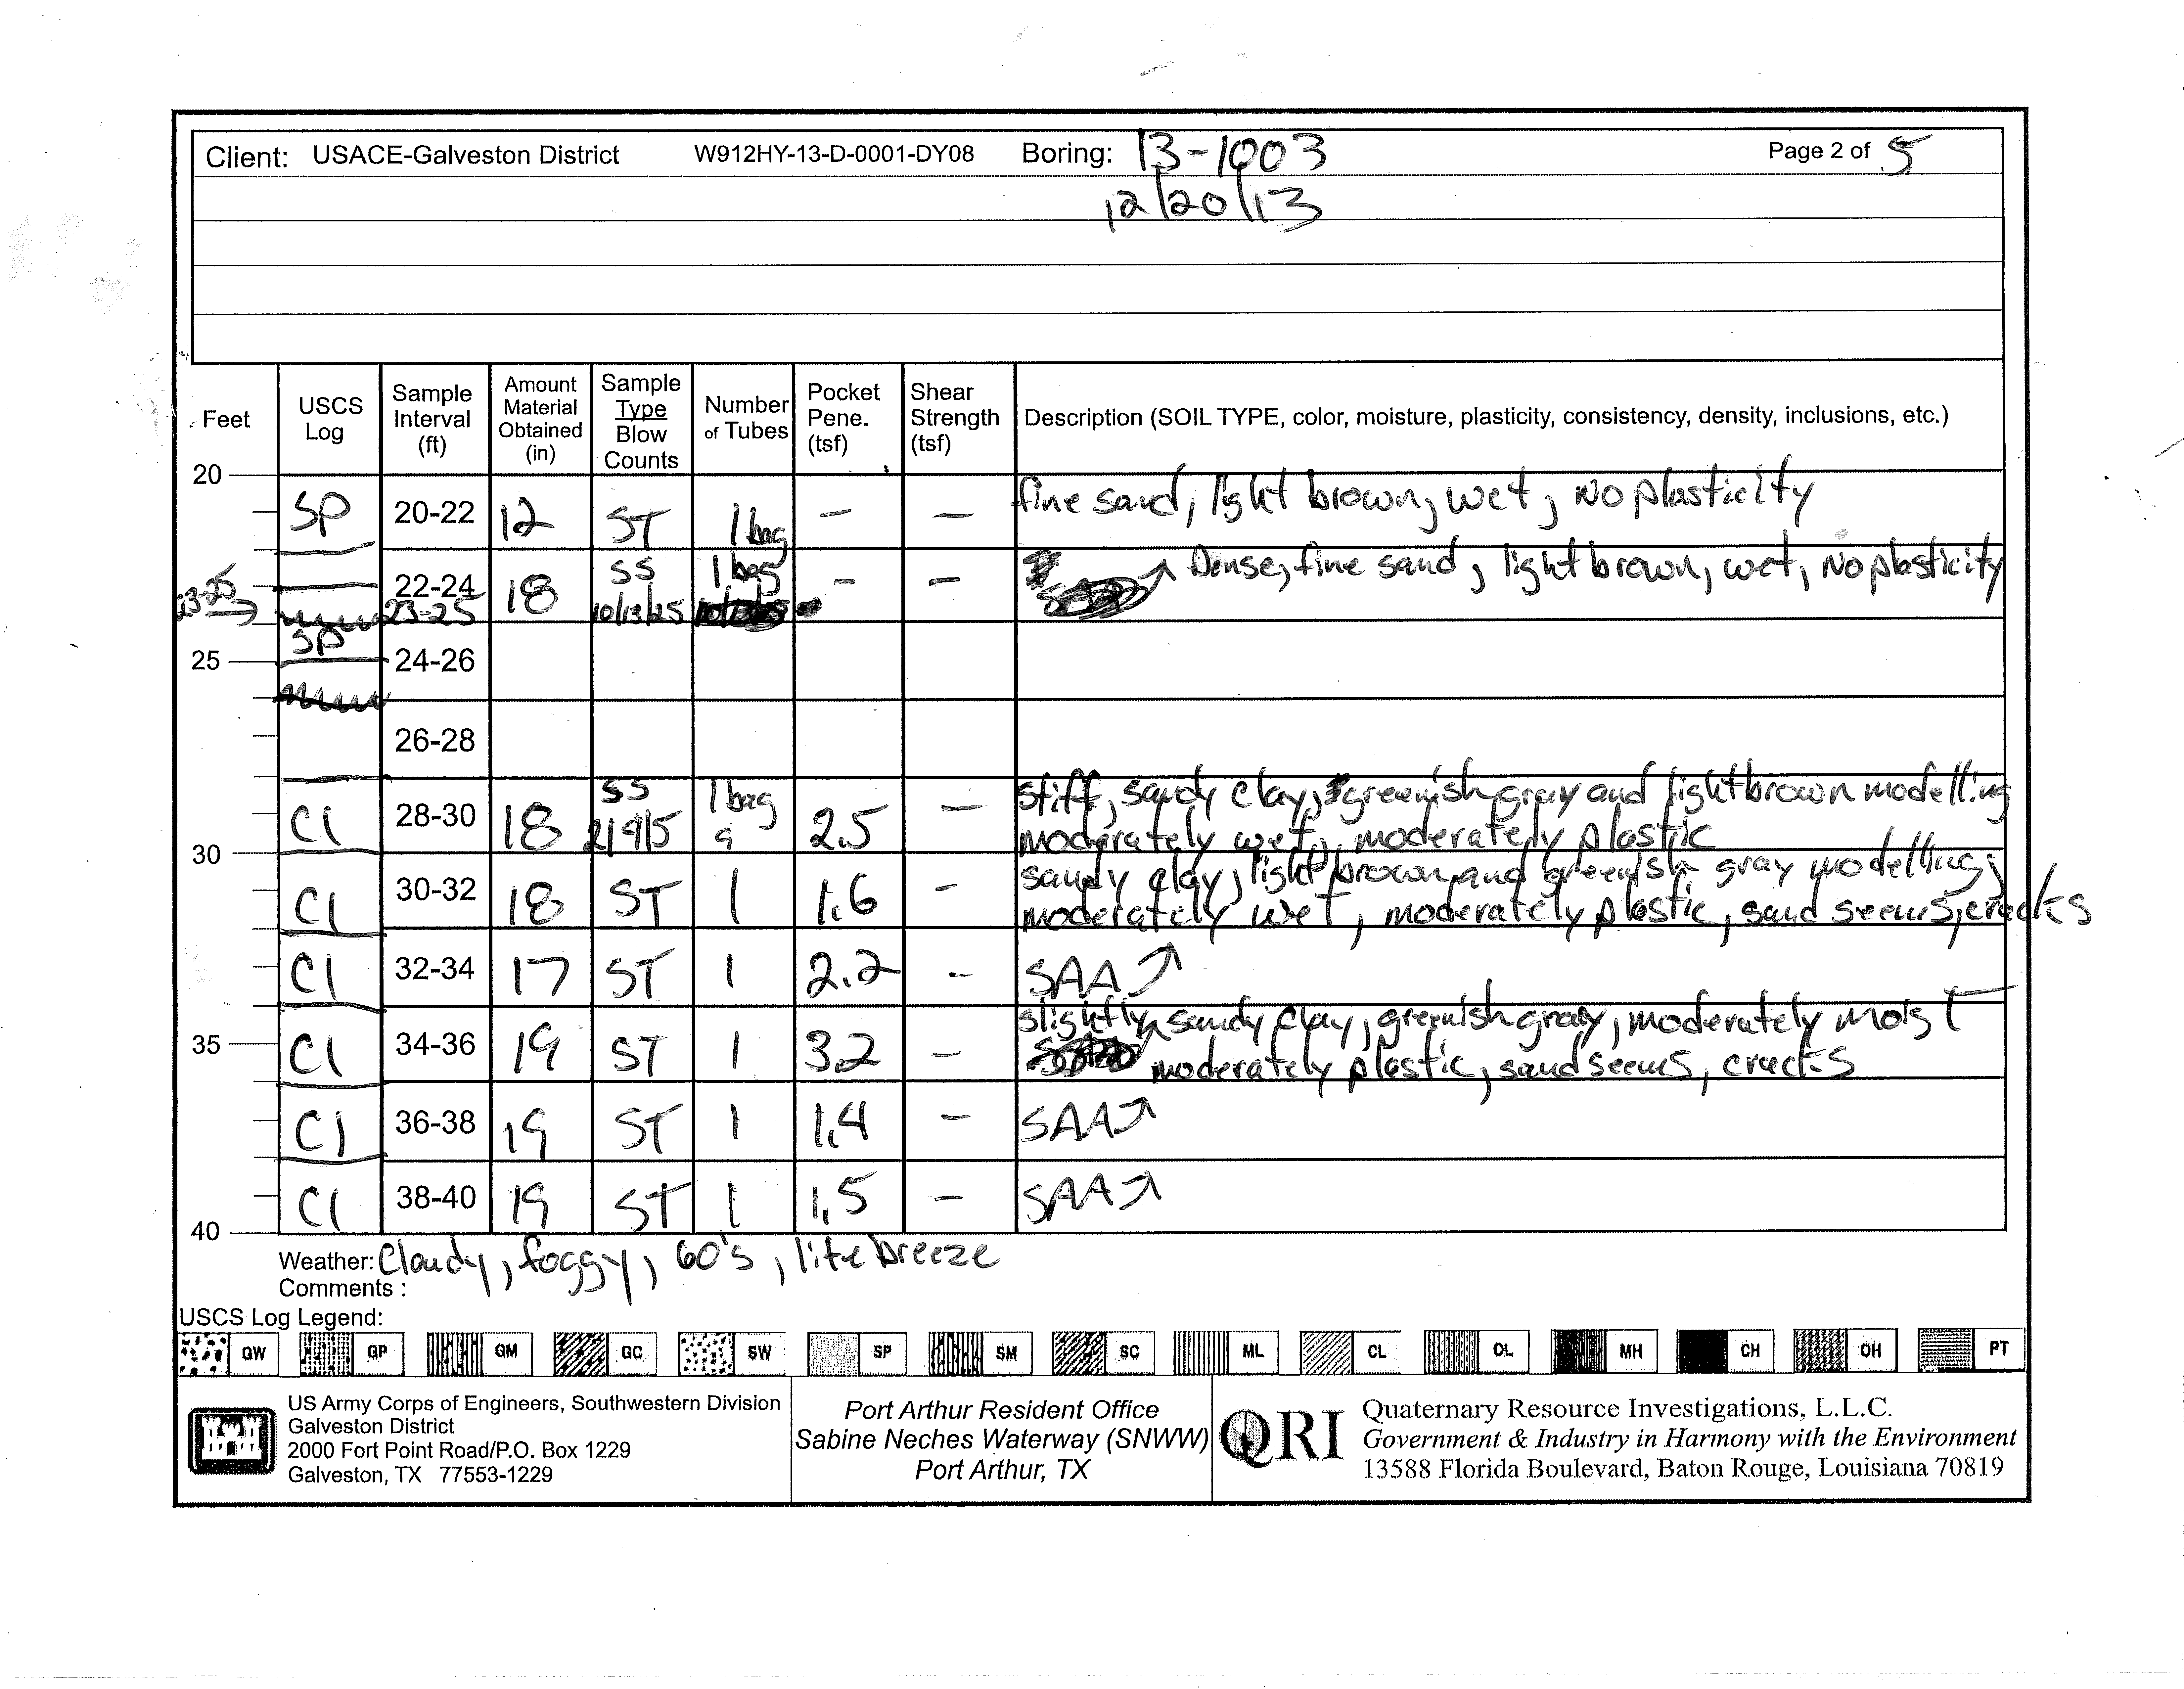 Client: USACE-Galveston District W912HY-13-D-0001-DY08 Boring: 13-1003 Page 2 of 5
12/20/13
Feet USCS Log Sample Interval (ft) Amount Material Obtained (in) Sample Type Blow Counts Number of Tubes Pocket Pene. (tsf) Shear Strength (tsf) Description (SOIL TYPE, color, moisture, plasticity, consistency, density, inclusions, etc.)
20
SP 20-22 12 ST 1 bag - - fine sand, light brown, wet, No plasticity
23-25 22-24 23-25 18 SS 10/13/25 1 bag - - Dense, fine sand, light brown, wet, No plasticity
SP
25 24-26
26-28
Cl 28-30 18 SS 2/9/5 1 bag 2.5 - stiff, sandy clay, greenish gray and light brown modelling
moderately wet, moderately plastic
30
Cl 30-32 18 ST 1 1.6 - sandy clay, light brown and greenish gray modelling,
moderately wet, moderately plastic, sand seems, cracks
Cl 32-34 17 ST 1 2.2 - SAA
35 Cl 34-36 19 ST 1 3.2 - slightly sandy clay, greenish gray, moderately moist
moderately plastic, sand seems, cracks
Cl 36-38 19 ST 1 1.4 - SAA
Cl 38-40 19 ST 1 1.5 - SAA
40
Weather: Cloudy, foggy, 60's, lite breeze
Comments :
USCS Log Legend:
GW GP GM GC SW SP SM SC ML CL OL MH CH OH PT
US Army Corps of Engineers, Southwestern Division
Galveston District
2000 Fort Point Road/P.O. Box 1229
Galveston, TX 77553-1229
Port Arthur Resident Office
Sabine Neches Waterway (SNWW)
Port Arthur, TX
QRI
Quaternary Resource Investigations, L.L.C.
Government & Industry in Harmony with the Environment
13588 Florida Boulevard, Baton Rouge, Louisiana 70819